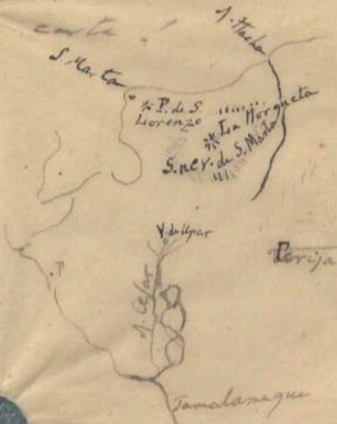 carta
R. Hacha
S. Marta
P. de S.
Lorenzo
La Horqueta
S. nev. de S. Marta
V. de Upar
Perija
R. Cesar
Tamalameque